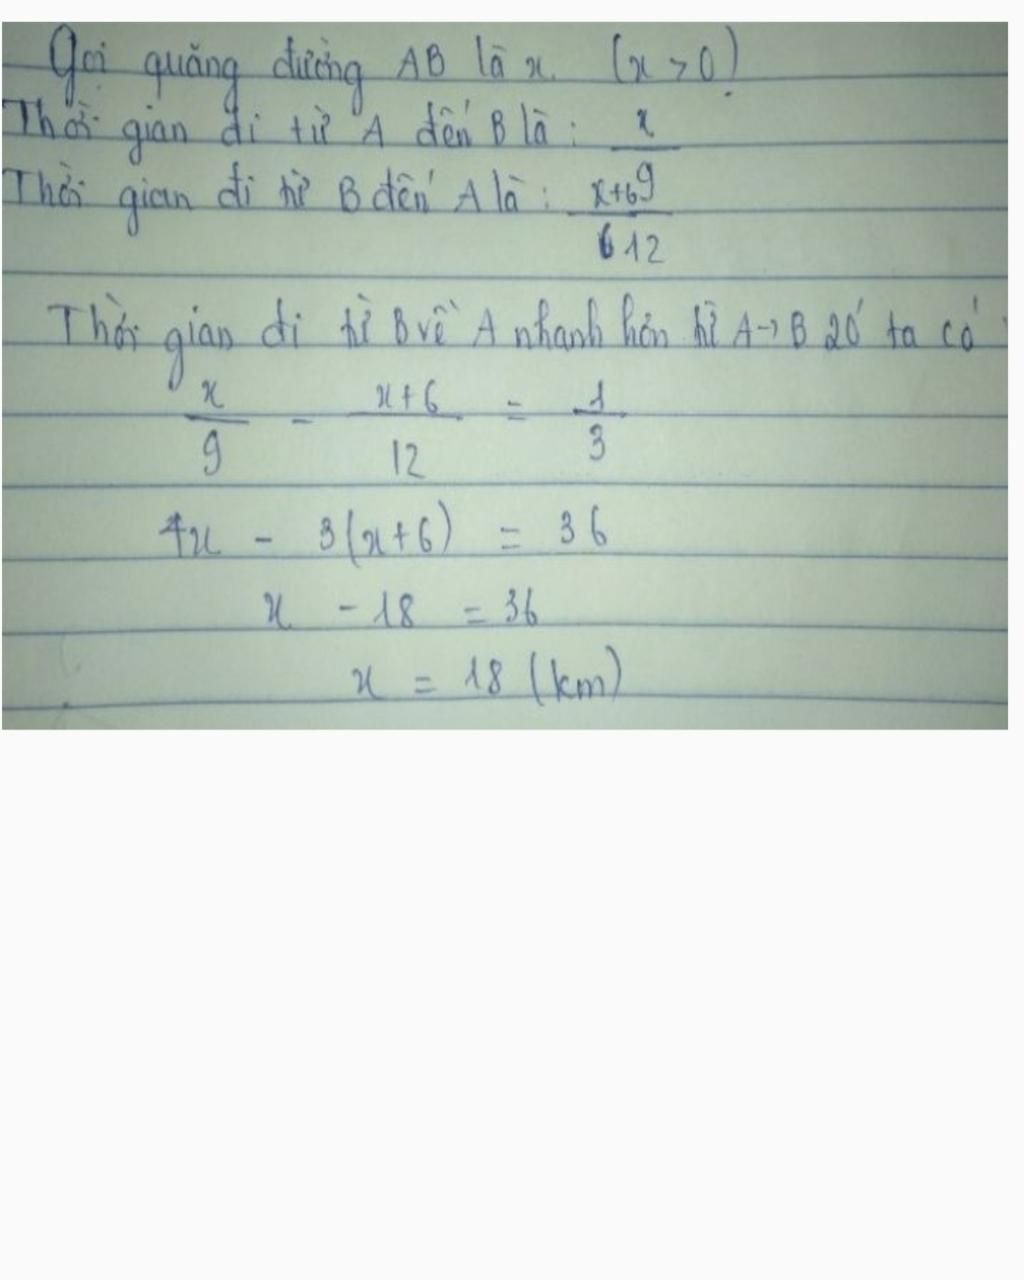 Gọi quãng đường AB là x. (x > 0)
Thời gian đi từ A đến B là : x/9
Thời gian đi từ B đến A là : x+6/12
Thời gian đi từ B về A nhanh hơn từ A→B 20' ta có :
x/9 - x+6/12 = 1/3
4x - 3(x+6) = 36
x - 18 = 36
x = 18 (km)